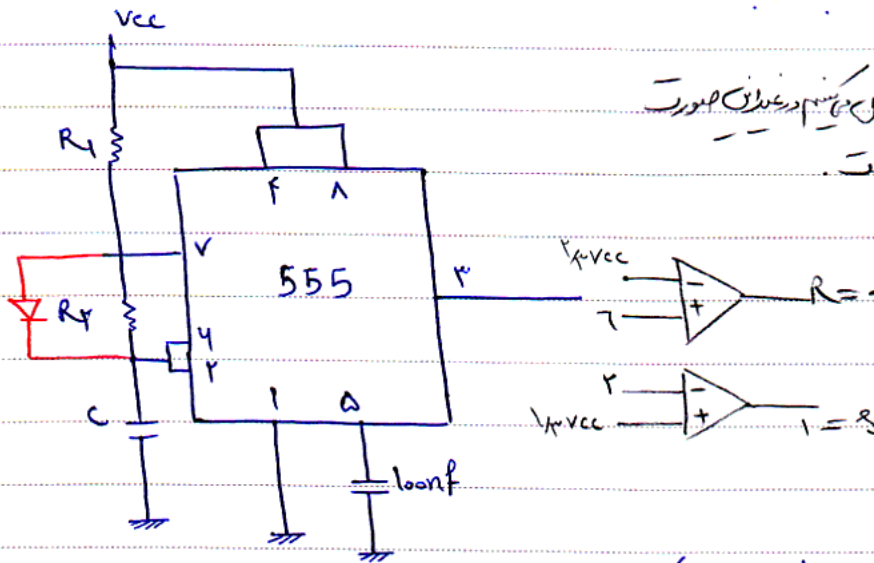 Vcc
R۱
۴ ۸
۷
555
۳
R۲
۶
۲
C
۱ ۵
100nf
در غیر این صورت
۲/۳ Vcc
-
+
۶
R =
۲
-
+
۱/۳ Vcc
۱ = S